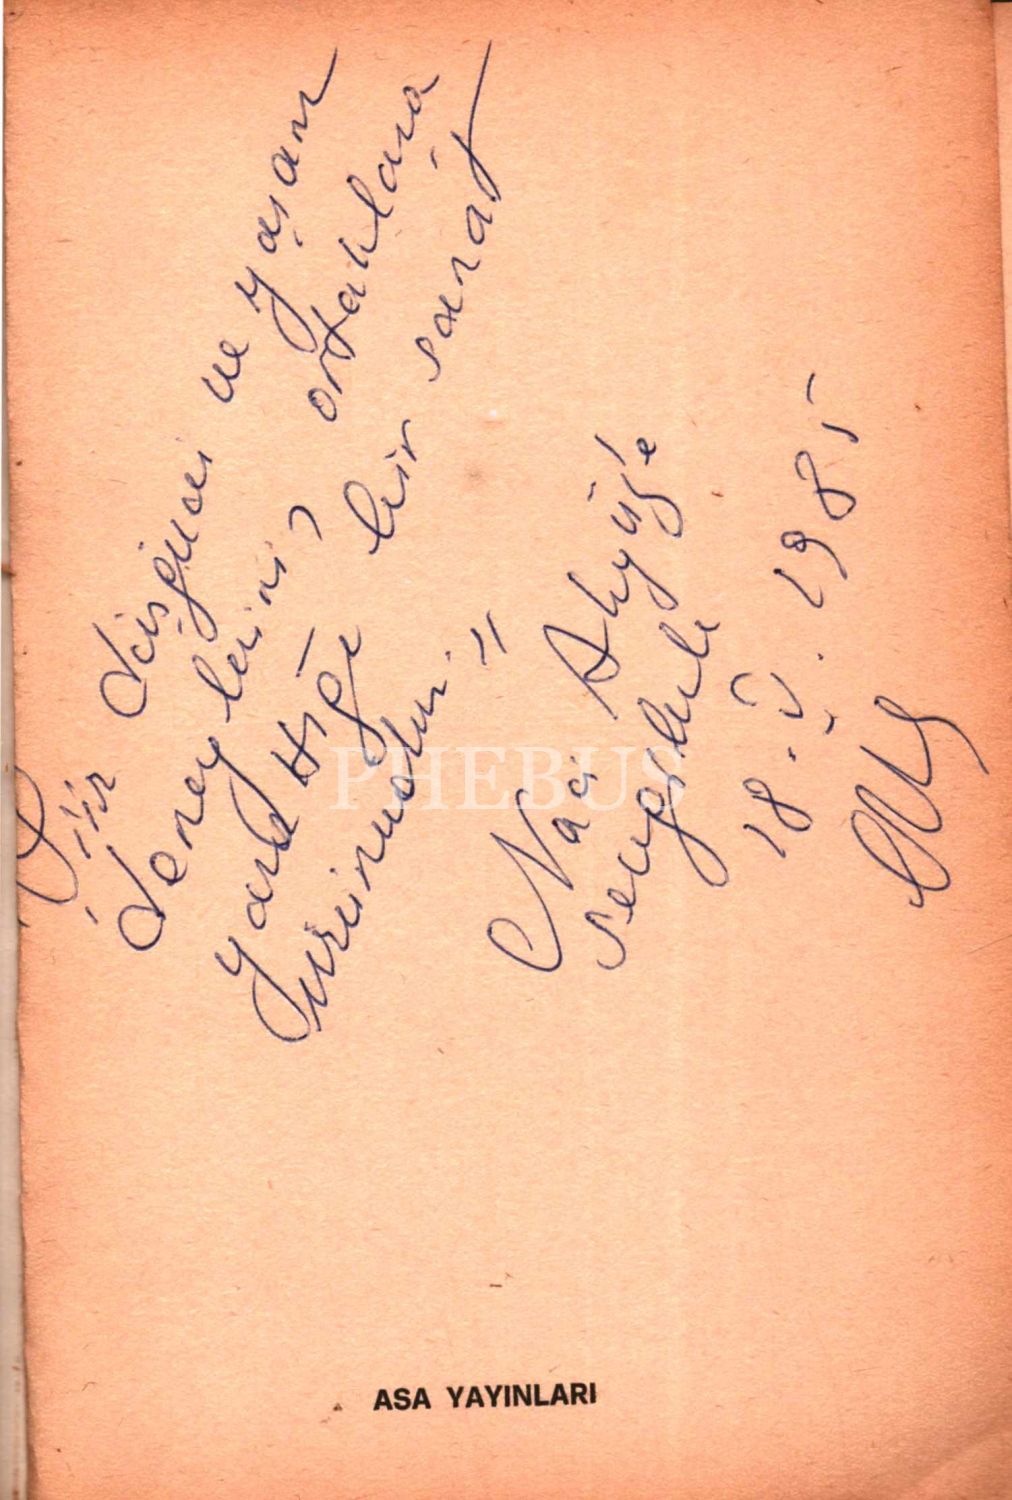 Şiir düşünü ve yaşam
deneylerini ortaklaşa
yarattığı bir sanat
ürünüdür."
Naci Akyüz'e
sevgilerle
18.V.1985
PHEBUS
ASA YAYINLARI